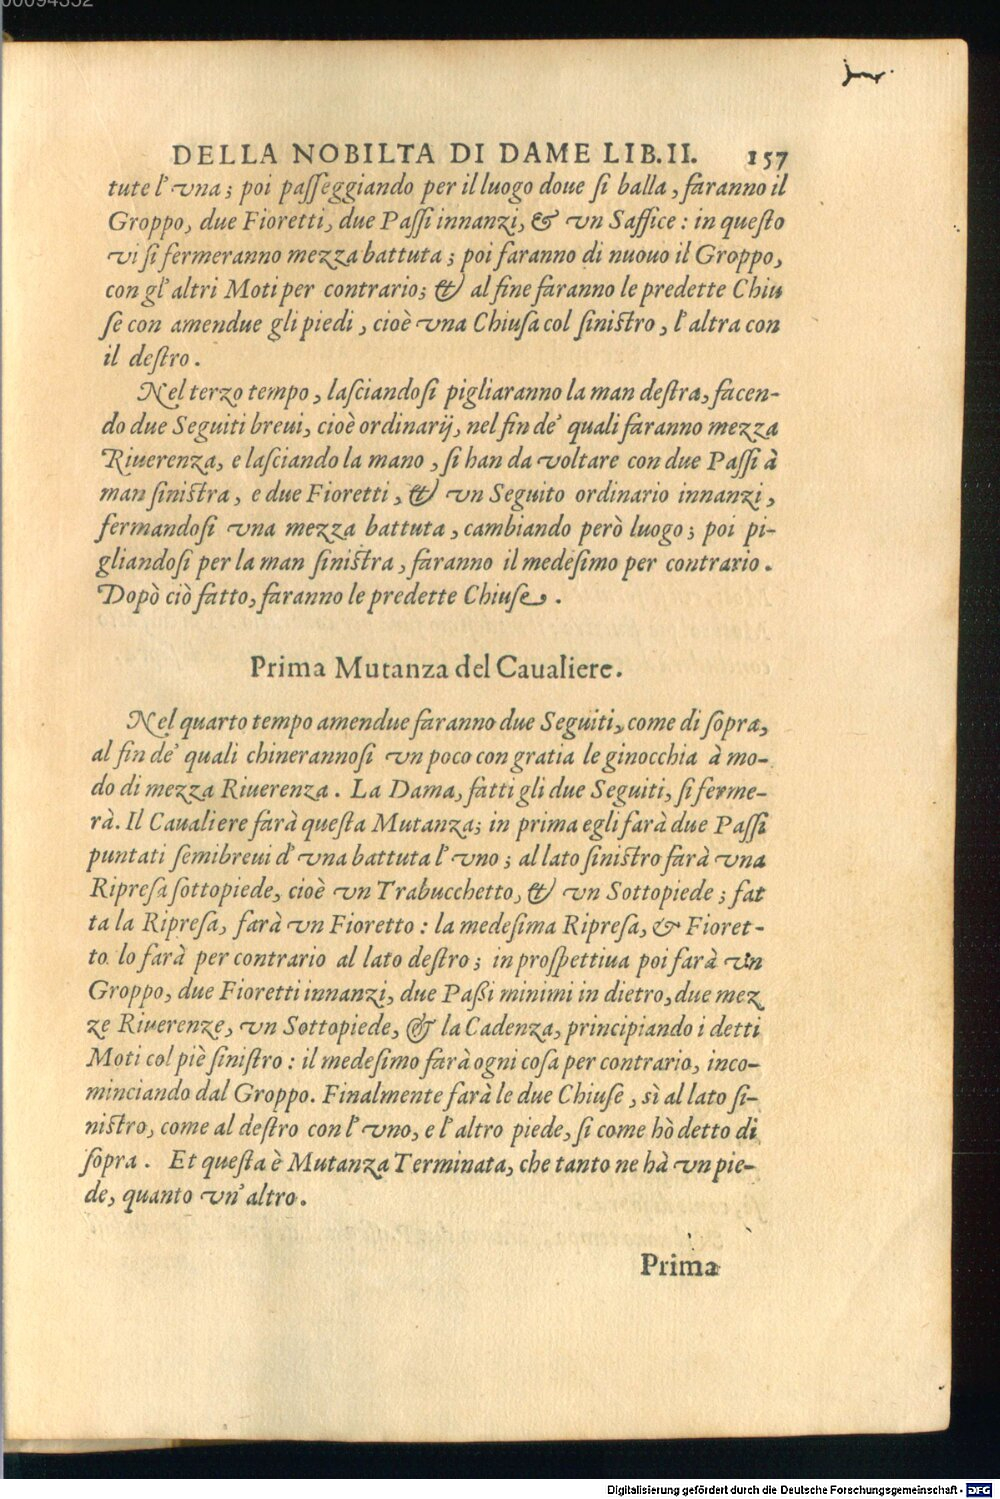 00094352
DELLA NOBILTA DI DAME LIB.II. 157
tute l'vna; poi paſſeggiando per il luogo doue ſi balla, faranno il
Groppo, due Fioretti, due Paſſi innanzi, & vn Saffice: in queſto
vi ſi fermeranno mezza battuta; poi faranno di nuouo il Groppo,
con gl'altri Moti per contrario; & al fine faranno le predette Chiu
ſe con amendue gli piedi, cioè vna Chiuſa col ſiniſtro, l'altra con
il deſtro.
Nel terzo tempo, laſciandoſi pigliaranno la man deſtra, facen-
do due Seguiti breui, cioè ordinarij, nel fin de' quali faranno mezza
Riuerenza, e laſciando la mano, ſi han da voltare con due Paſſi à
man ſiniſtra, e due Fioretti, & vn Seguito ordinario innanzi,
fermandoſi vna mezza battuta, cambiando però luogo; poi pi-
gliandoſi per la man ſiniſtra, faranno il medeſimo per contrario.
Dopò ciò fatto, faranno le predette Chiuſe.
Prima Mutanza del Caualiere.
Nel quarto tempo amendue faranno due Seguiti, come di ſopra,
al fin de' quali chinerannoſi vn poco con gratia le ginocchia à mo-
do di mezza Riuerenza. La Dama, fatti gli due Seguiti, ſi ferme-
rà. Il Caualiere farà queſta Mutanza; in prima egli farà due Paſſi
puntati ſemibreui d'vna battuta l'vno; al lato ſiniſtro farà vna
Ripreſa ſottopiede, cioè vn Trabucchetto, & vn Sottopiede; fat
ta la Ripreſa, farà vn Fioretto: la medeſima Ripreſa, & Fioret-
to lo farà per contrario al lato deſtro; in proſpettiua poi farà vn
Groppo, due Fioretti innanzi, due Paßi minimi in dietro, due mez
ze Riuerenze, vn Sottopiede, & la Cadenza, principiando i detti
Moti col piè ſiniſtro: il medeſimo farà ogni coſa per contrario, inco-
minciando dal Groppo. Finalmente farà le due Chiuſe, sì al lato ſi-
niſtro, come al deſtro con l'vno, e l'altro piede, ſi come hò detto di
ſopra. Et queſta è Mutanza Terminata, che tanto ne hà vn pie-
de, quanto vn'altro.
Prima
Digitalisierung gefördert durch die Deutsche Forschungsgemeinschaft - DFG